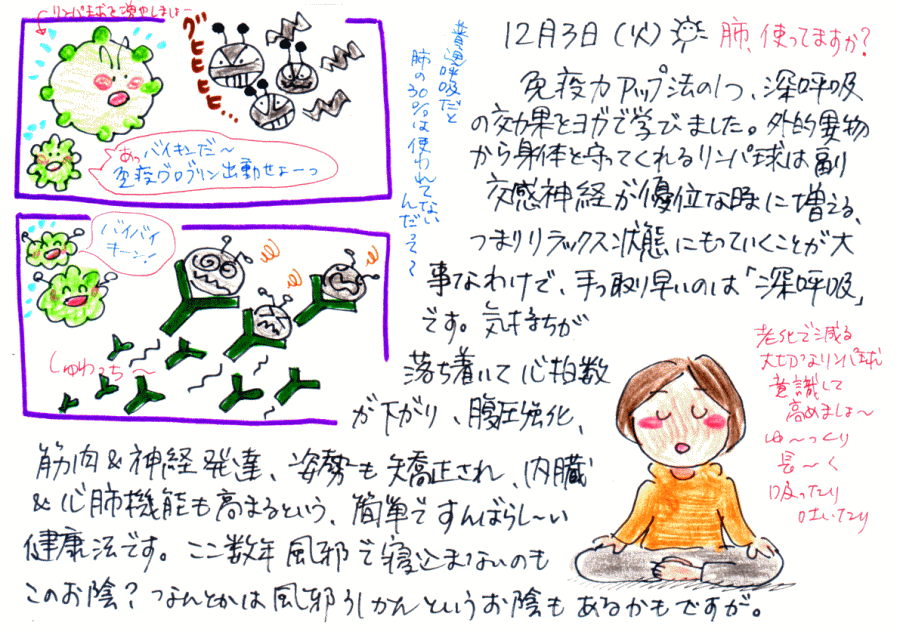 12月3日(火) 肺、使ってますか?
免疫力アップ法の1つ、深呼吸
の効果とヨガで学びました。外的異物
から身体と守ってくれるリンパ球は副
交感神経が優位な時に増える、
つまりリラックス状態にもっていくことが大
事なわけで、手っ取り早いのは「深呼吸」
です。気持ちが
落ち着いて心拍数
が下がり、腹圧強化、
筋肉&神経発達、姿勢も矯正され、内臓
&心肺機能も高まるという、簡単ですんばらし〜い
健康法です。ここ数年風邪で寝込まないのも
このお陰?なんとかは風邪うしかんというお陰もあるかもですが。
普通呼吸だと
肺の30%は使われてない
んだって〜
リンパ球を増やしましょー
グヒヒヒヒ…
あっバイキンだ〜
免疫グロブリン出動せよーっ
バイバイ
キーン!
しゅわっち〜
老化で減る
大切なリンパ球
意識して
高めましょ〜
ゆ〜っくり
長〜く
吸ったり
吐いたり